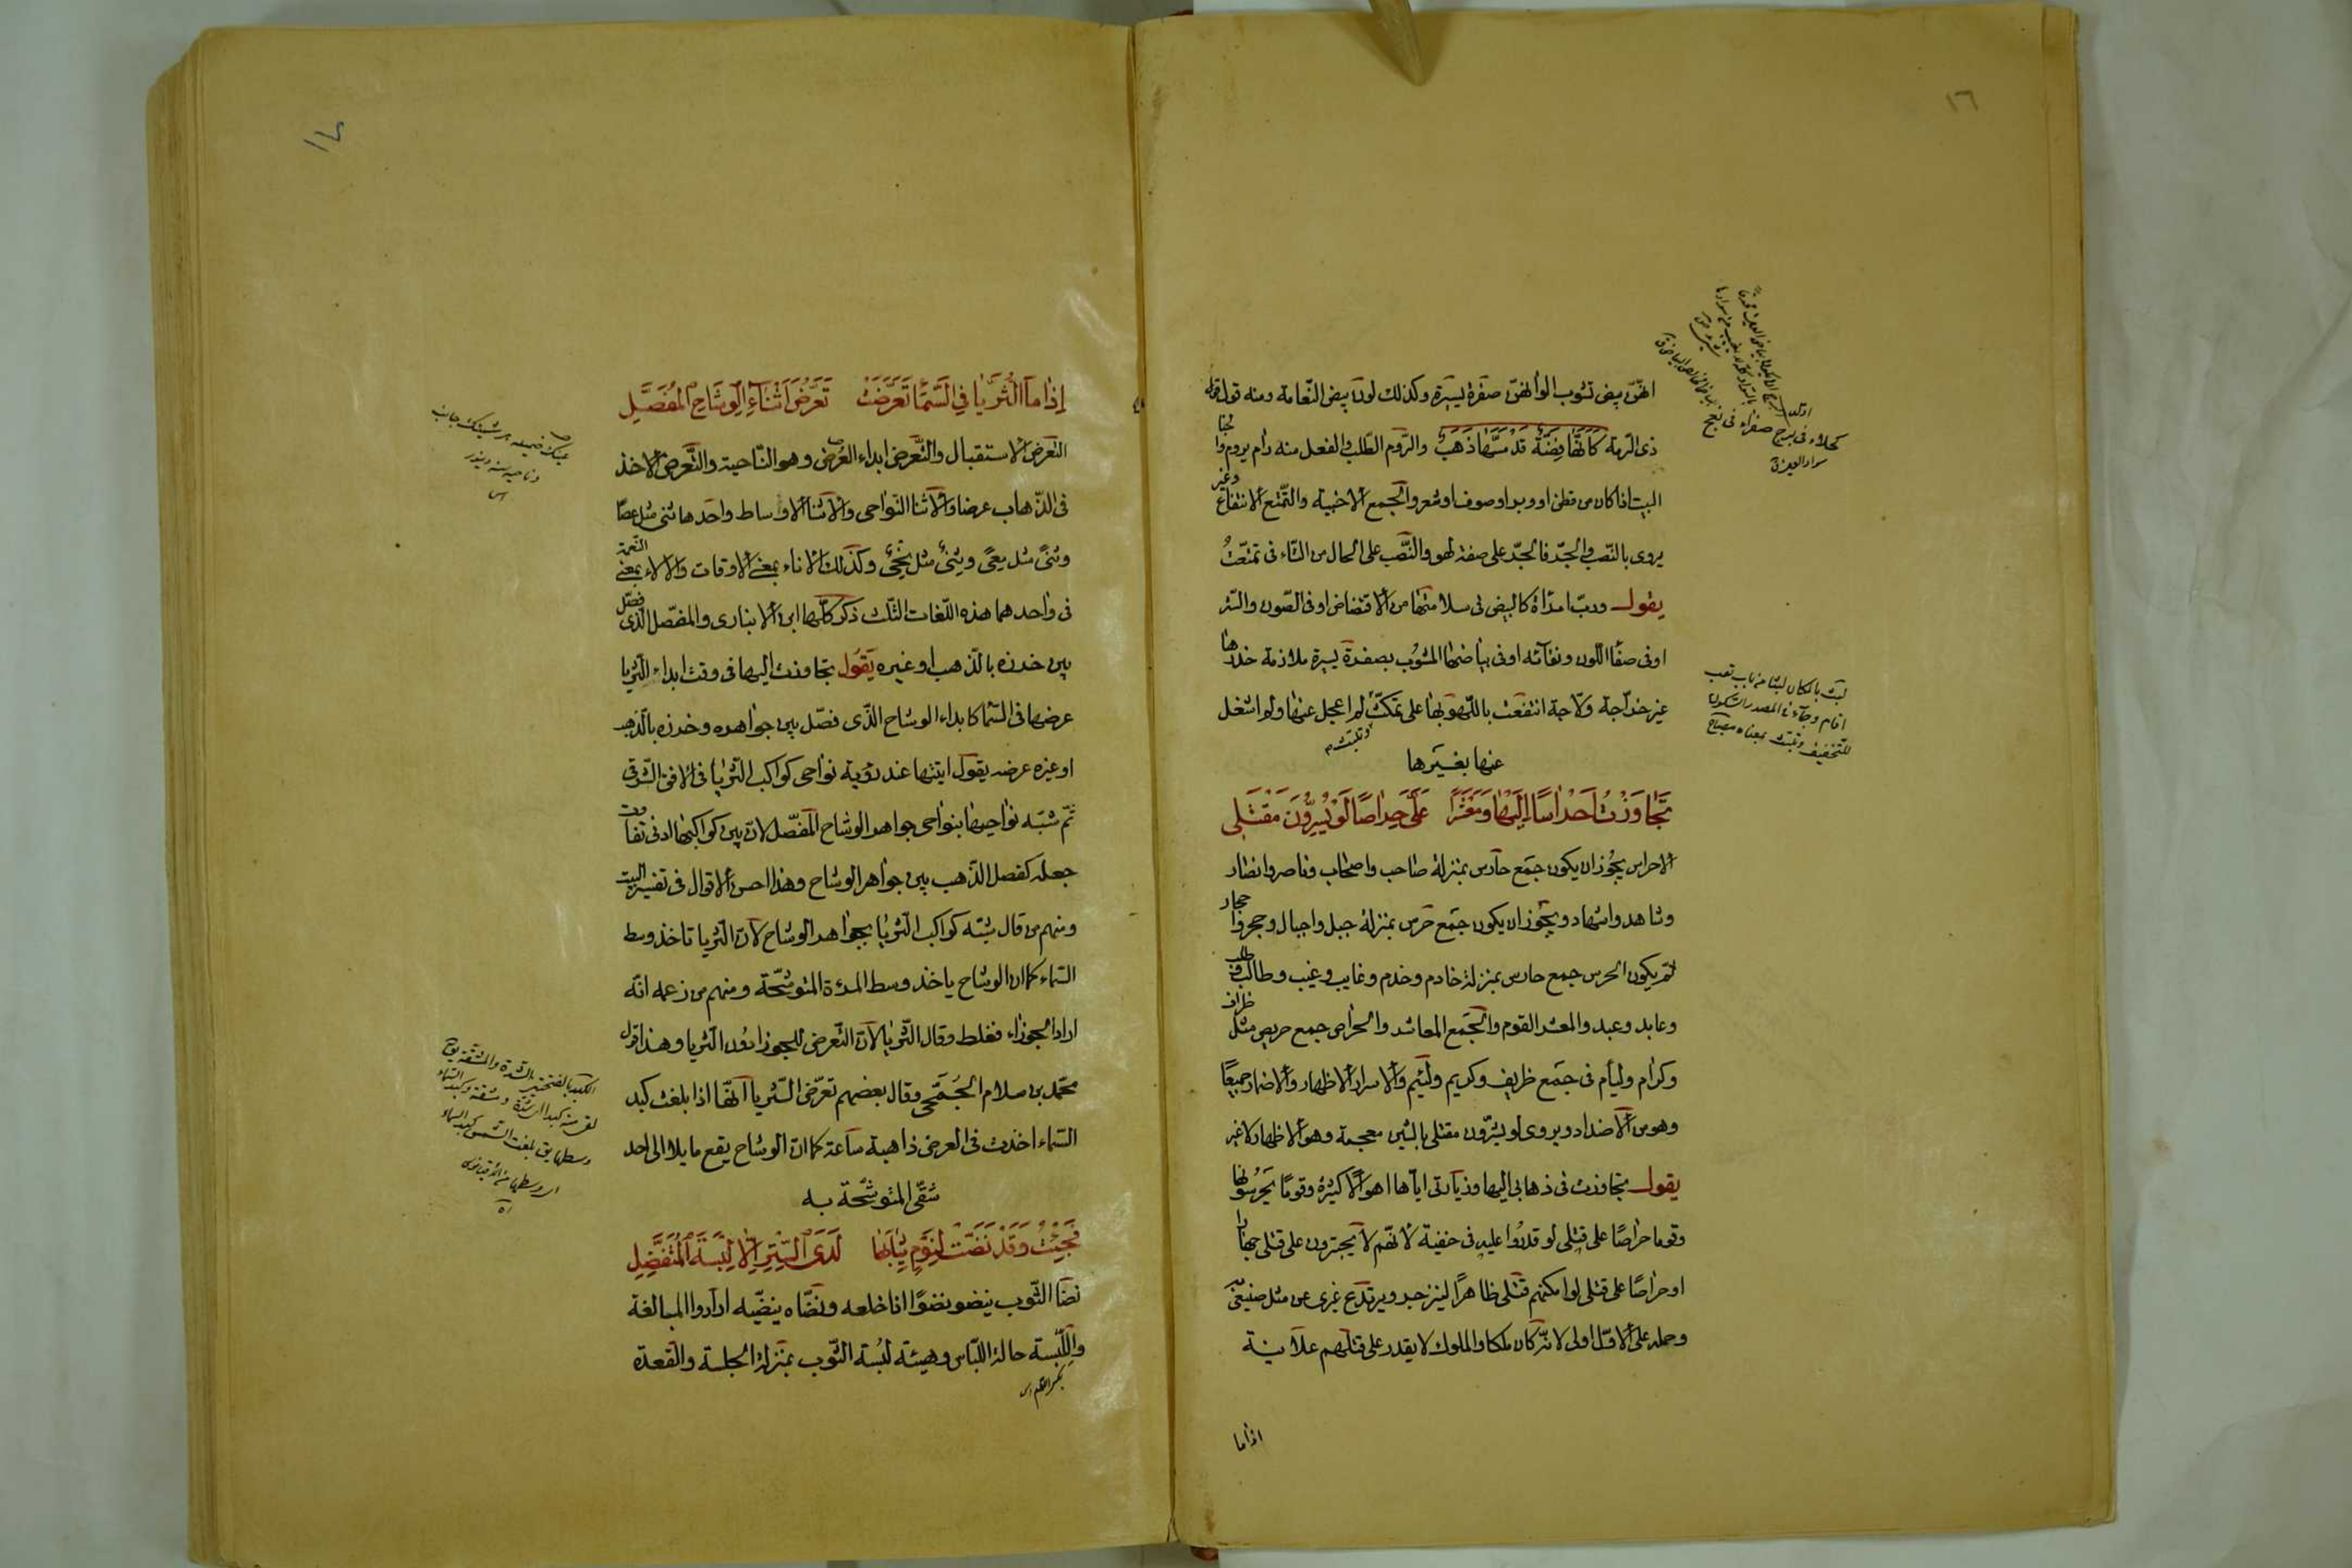 ١٦
انهنّ بيض تشوب الوانهنّ صفرة يسيرة وكذلك لون بيض النّعامة ومنه قول
ذى الرّمة كَاَنَّهَا فِضَّةٌ قَدْ مَسَّهَا ذَهَبُ والرّوم الطّلب والفعل منه رام يروم والخبا
البيت اذا كان من قطن او وبر او صوف او شعر والجمع الاخبية والتّمتع الانتفاع وغير
يروى بالنّصب والجرّ فالجرّ على صفة لهو والنّصب على الحال من التّاء فى تمتعّتُ
يقول وربّ امرأة كالبيض فى سلامتها من الافتضاض او فى الصّون والسّتر
او فى صفاء اللّون ونقآئه او فى بياضها المشوب بصفرة يسيرة ملازمة خدرها
غير خرّاجة ولّاجة انتفعت باللّهو بها على تمكّث لم اعجل عنها ولم اشغل
وتلبّث
عنها بغيرها
تَجَاوَزْتُ اَحْرَاسًا اِلَيْهَا وَمَعْشَرًا عَلَىَّ حِرَاصًا لَوْ يُسِرُّونَ مَقْتَلِى
الاحراس يجوز ان يكون جمع حارس بمنزلة صاحب واصحاب وناصر وانصار
وشاهد واشهاد ويجوز ان يكون جمع حرس بمنزلة جبل واجبال وحجر واحجار
ثم يكون الحرس جمع حارس بمنزلة خادم وخدم وغايب وغيب وطالب وطلب
وعابد وعبد والمعشر القوم والجمع المعاشر والحراص جمع حريص مثل ظراف
وكرام ولئام فى جمع ظريف وكريم ولئيم والاسرار الاظهار والاضمار جميعًا
وهو من الاضداد ويروى لو يشرّون مقتلى بالشين معجمة وهو الاظهار لا غير
يقول تجاوزت فى ذهابى اليها وزيارتى ايّاها اهوالا كثيرة وقومًا يحرسونها
وقوما حراصًا على قتلى لو قدروا عليه فى خفية لانّهم لا يجترون على قتلى جهارًا
او حراصًا على قتلى لو امكنهم قتلى ظاهرًا لينزجر ويرتدع غيرى عن مثل صنيعى
وحمله على الاوّل اولى لانّه كان ملكا والملوك لا يقدر على قتلهم علانية
اذاما
كحلاء فى برج صفراء فى نعج
سواد العين
لبث بالمكان لبثا من باب تعب
اقام وجآء فى المصدر السّكون
للتّخفيف وتلبّث بمعناه مصباح
١٧
اِذَا مَا الثُّرَيَّا فِى السَّمَآءِ تَعَرَّضَتْ تَعَرُّضَ اَثْنَاءِ الْوِشَاحِ الْمُفَصَّلِ
التعرض الاستقبال والتّعرض ابداء العُرض وهو النّاحية والتّعرض الاخذ
فى الذّهاب عرضا والاثناء النّواحى والاثناء الاوساط واحدها ثنى مثل عصًا
وثنًى مثل معًى وثِنْى مثل نِحْى وكذلك الاناء بمعنى الاوقات والالاء بمعنى النّعم
فى واحدهما هذه اللّغات الثّلث ذكر كلّها ابن الانبارى والمفصّل الّذى فصّل
بين خرزه بالذّهب او غيره يَقُول تجاوزت اليها فى وقت ابداء الثّريّا
عرضها فى السّماء كابداء الوشاح الّذى فصّل بين جواهره وخرزه بالذّهب
او غيره عرضه يقول اتيتها عند رؤية نواحى كواكب الثّريّا فى الافق الشّرقى
ثمّ شبّه نواحيها بنواحى جواهر الوشاح المفصّل لانّ بين كواكبها ادنى تفاوت
جعله كفصل الذّهب بين جواهر الوشاح وهذا احسن الاقوال فى تفسير البيت
ومنهم من قال شبّه كواكب الثّريّا بجواهر الوشاح لانّ الثّريا تاخذ وسط
السّماء كما ان الوشاح ياخذ وسط المرءة المتوشّحة ومنهم من زعم انّه
اراد الجوزاء فغلط وقال الثّريّا لانّ التّعرض للجوزا دون الثريا وهذا قول
محمّد بن سلام الجُمَحى وقال بعضهم تعرّض الثّريا انّها اذا بلغت كبد
السّماء اخذت فى العرض ذاهبة ساعة كما انّ الوشاح يقع مايلا الى احد
شقّى المتوشّحة به
فَجِئْتُ وَقَدْ نَضَتْ لِنَوْمٍ ثِيَابَهَا لَدَى السِّتْرِ اِلَّا لِبْسَةَ الْمُتَفَضِّلِ
نضا الثّوب ينضو نضوًا اذا خلعه ونضّاه ينضّيه اذا ارادوا المبالغة
واللّبسة حالة اللّباس وهيئة لبسة الثّوب بمنزلة الجلسة والقعدة
الكبد بالفتحتين الشدّة والمشقّة يق
وسطها يق بلغت الشّمس كبد السماء